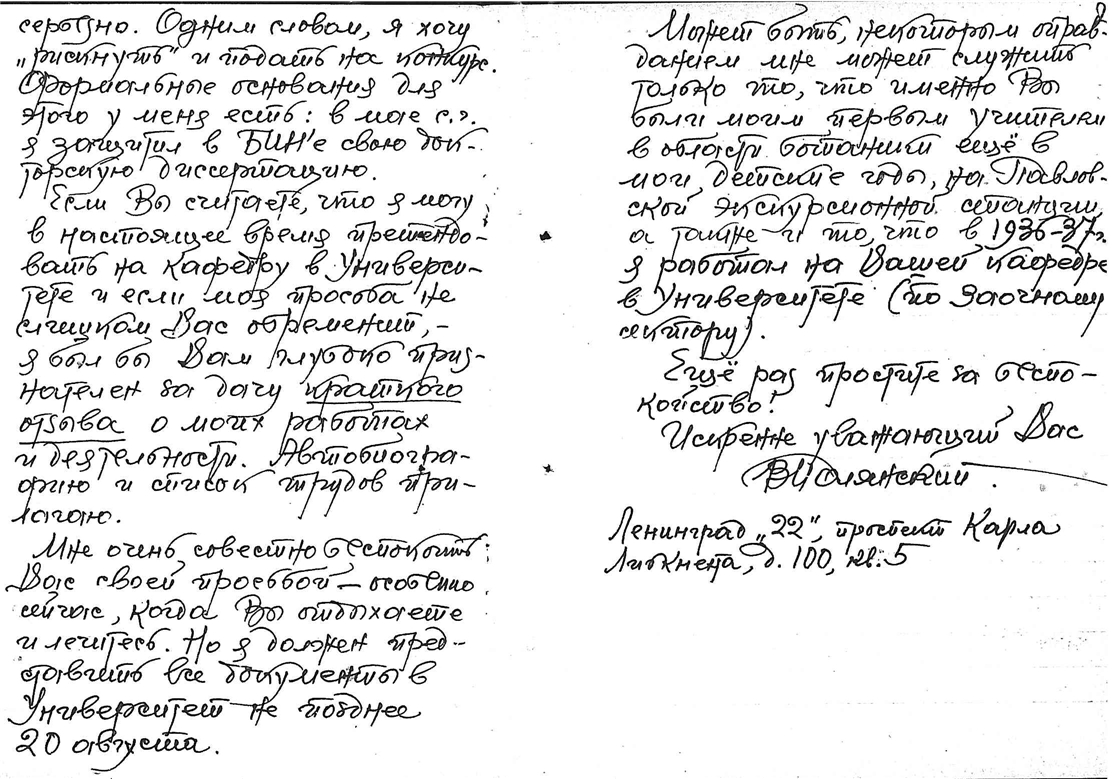 серьёзно. Одним словом, я хочу
„рискнуть“ и подать на конкурс.
Формальные основания для
этого у меня есть: в мае с.г.
я защитил в БИН'е свою док-
торскую диссертацию.
Если Вы считаете, что я могу
в настоящее время претендо-
вать на кафедру в Универси-
тете и если моя просьба не
слишком Вас обременит, –
я был бы Вам глубоко приз-
нателен за дачу краткого
отзыва о моих работах
и деятельности. Автобиогра-
фию и список трудов при-
лагаю.
Мне очень совестно беспокоить
Вас своей просьбой – особенно
сейчас, когда Вы отдыхаете
и лечитесь. Но я должен пред-
ставить все документы в
Университет не позднее
20 августа.
Может быть, некоторым оправ-
данием мне может служить
только то, что именно Вы
были моим первым учителем
в области ботаники ещё в
мои детские годы, на Павлов-
ской экскурсионной станции,
а также и то, что в 1936-37г.
я работал на Вашей кафедре
в Университете (по заочному
сектору).
Ещё раз простите за беспо-
койство!
Искренне уважающий Вас
ВПолянский.
Ленинград „22“, проспект Карла
Либкнехта, д. 100, кв. 5